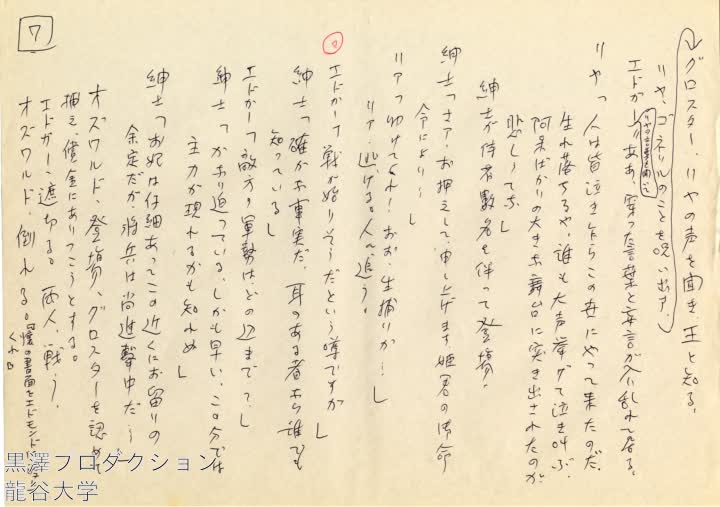 グロスター、リヤの声を聞き、王と知る。
リヤ、ゴネリルのことを呪い出す。
エドガー「ああ、穿った言葉と妄言が入り乱れて居る。
リヤの言葉を聞いて
リヤ「人は皆泣き乍らこの世にやって来たのだ。
生れ落ちるや、誰も大声挙げて泣き叫ぶ。
阿呆ばかりの大きな舞台に突き出されたのが
悲しうてな」
紳士が侍者数名を伴って登場。
紳士「さア、お押えして、申し上げます、姫君の御命
令により…」
リア「ゆけてくれ!おお、生捕りか…」
リア、逃げる。人々追う。
エドガー「戦が始りそうだという噂ですが」
紳士「確かな事実だ、耳のある者なら誰でも
知っている」
エドガー「敵方の軍勢は、どの辺まで?」
紳士「かなり迫っている、しかも早い、この分では
主力が現れるかも知れぬ」
紳士「お妃は仔細あってこの近くにお留りの
余定だが、将兵は尚進撃中だ…」
オズワルド、登場、グロスターを認めて
押え、賞金にありつこうとする。
エドガー、遮切る。両人、戦う。
オズワルド、倒れる。
『懐の書面をエドモンドに
くれ』
7
黒澤プロダクション
龍谷大学